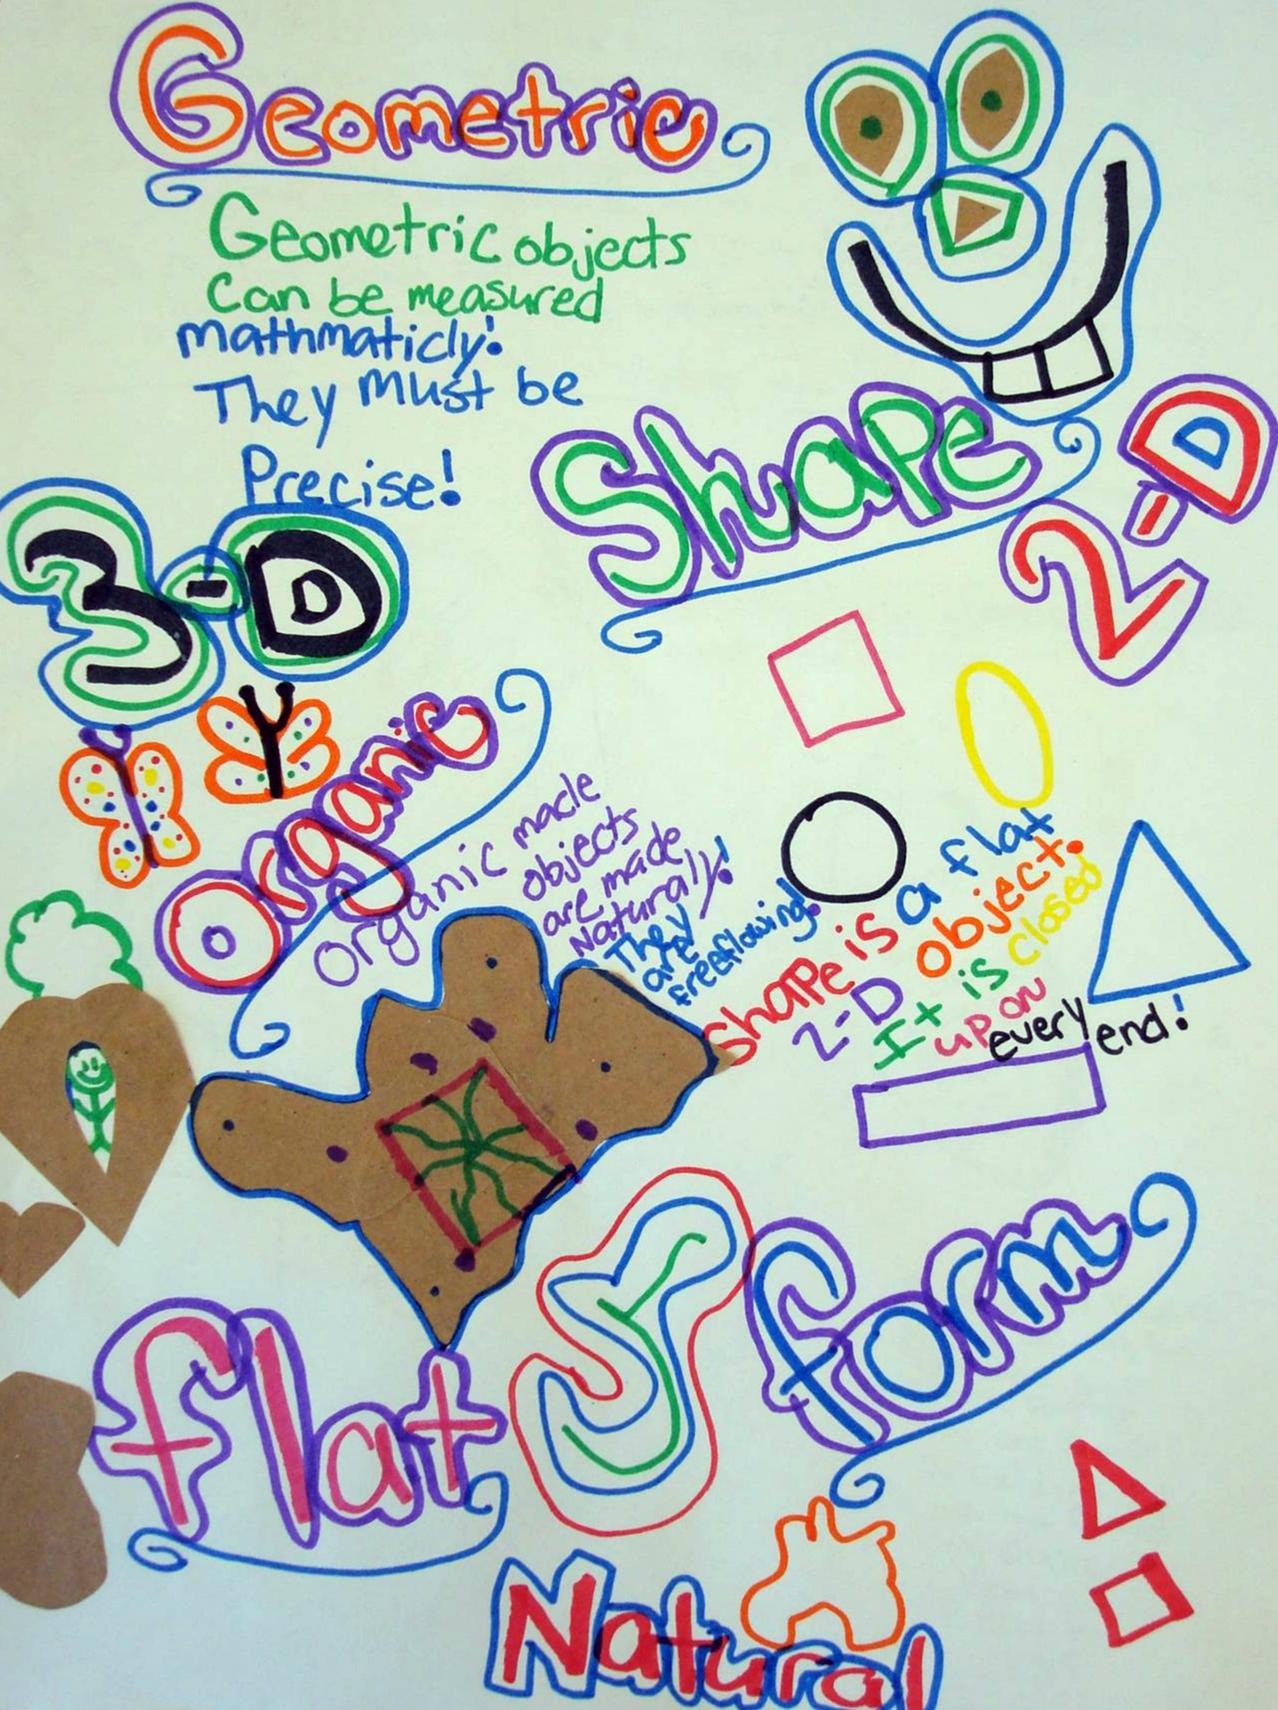 Geometric
Geometric objects
Can be measured
mathmaticly!
They must be
Precise!
Shape
2-D
3-D
Organic
organic made
objects
are made
Naturaly!
They
are
freeflowing!
Shape is a flat
2-D object.
It is closed
up on
every end!
flat
form
Natural